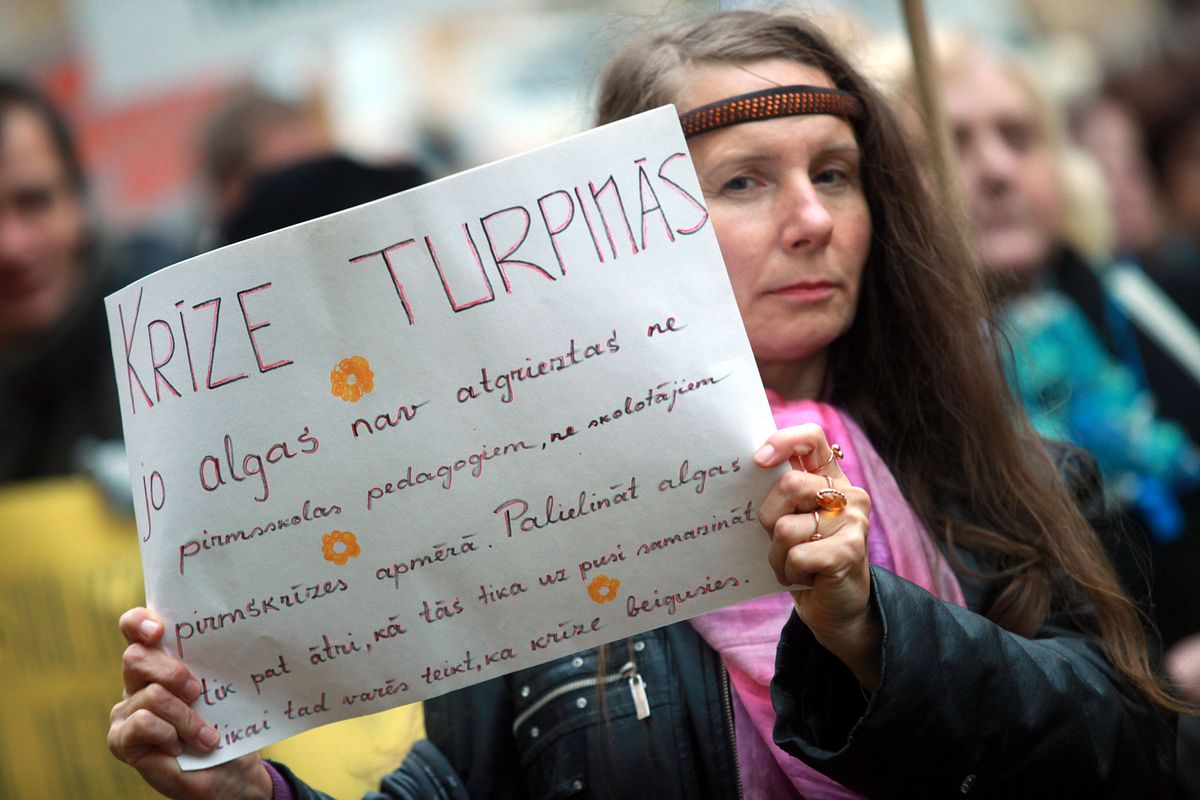 KRĪZE TURPINĀS
jo algas nav atgrieztas ne
pirmsskolas pedagogiem, ne skolotājiem
pirmskrīzes apmērā. Palielināt algas
tik pat ātri, kā tās tika uz pusi samazināt
tikai tad varēs teikt, ka krīze beigusies.